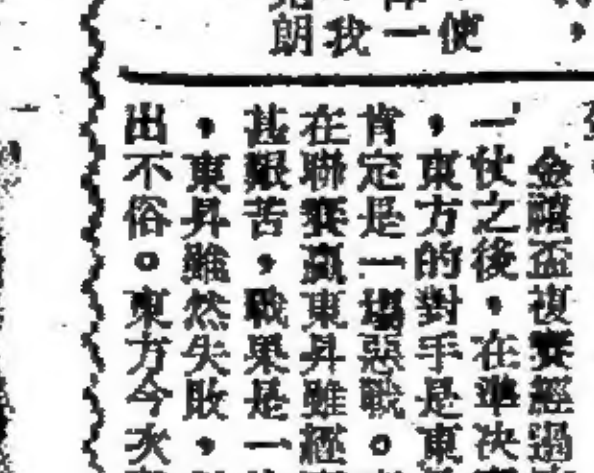 使
一
我
朗
金禧盃複賽經過
一仗之後，在準决
，東方的對手是東
肯定是一場惡戰。
在聯賽贏東昇雖極
甚艱苦，戰果是一
，東昇雖然失敗，
出不俗。東方今次